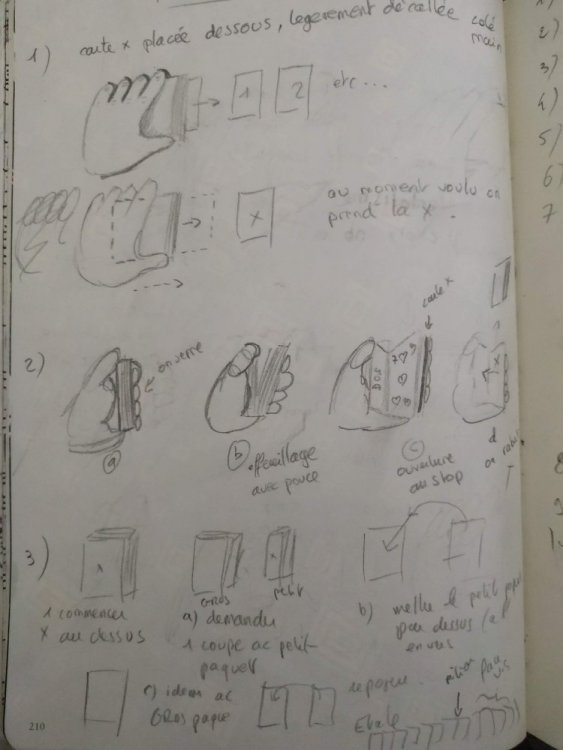 1) carte x placée dessous, légèrement décallée coté
main
1 2 etc...
au moment voulu on
prend la x.
x
2) on serre
carte x
DOS 7♡
a b c d
effeuillage
avec pouce
ouverture
au stop
on
3) x
GROS petit
1 commencer
x au dessus
a) demander
1 coupe ac petit
paquet
b) mettre le petit paquet
par dessus
envers
c) idem ac
GROS paquet
Etale
210
1)
2)
3)
4)
5)
6)
7